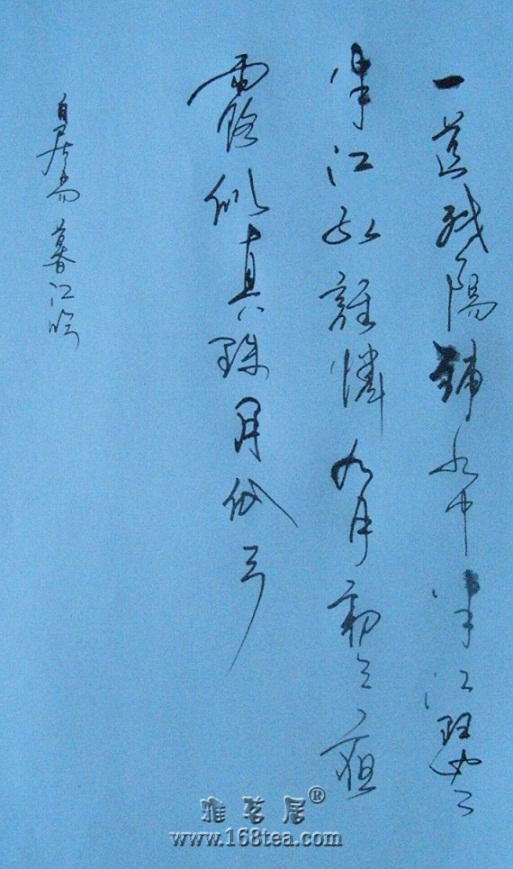 一道残陽鋪水中半江瑟瑟
半江红誰憐九月初三夜
露似真珠月似弓
白居易 暮江吟
雅茗居®
www.168tea.com